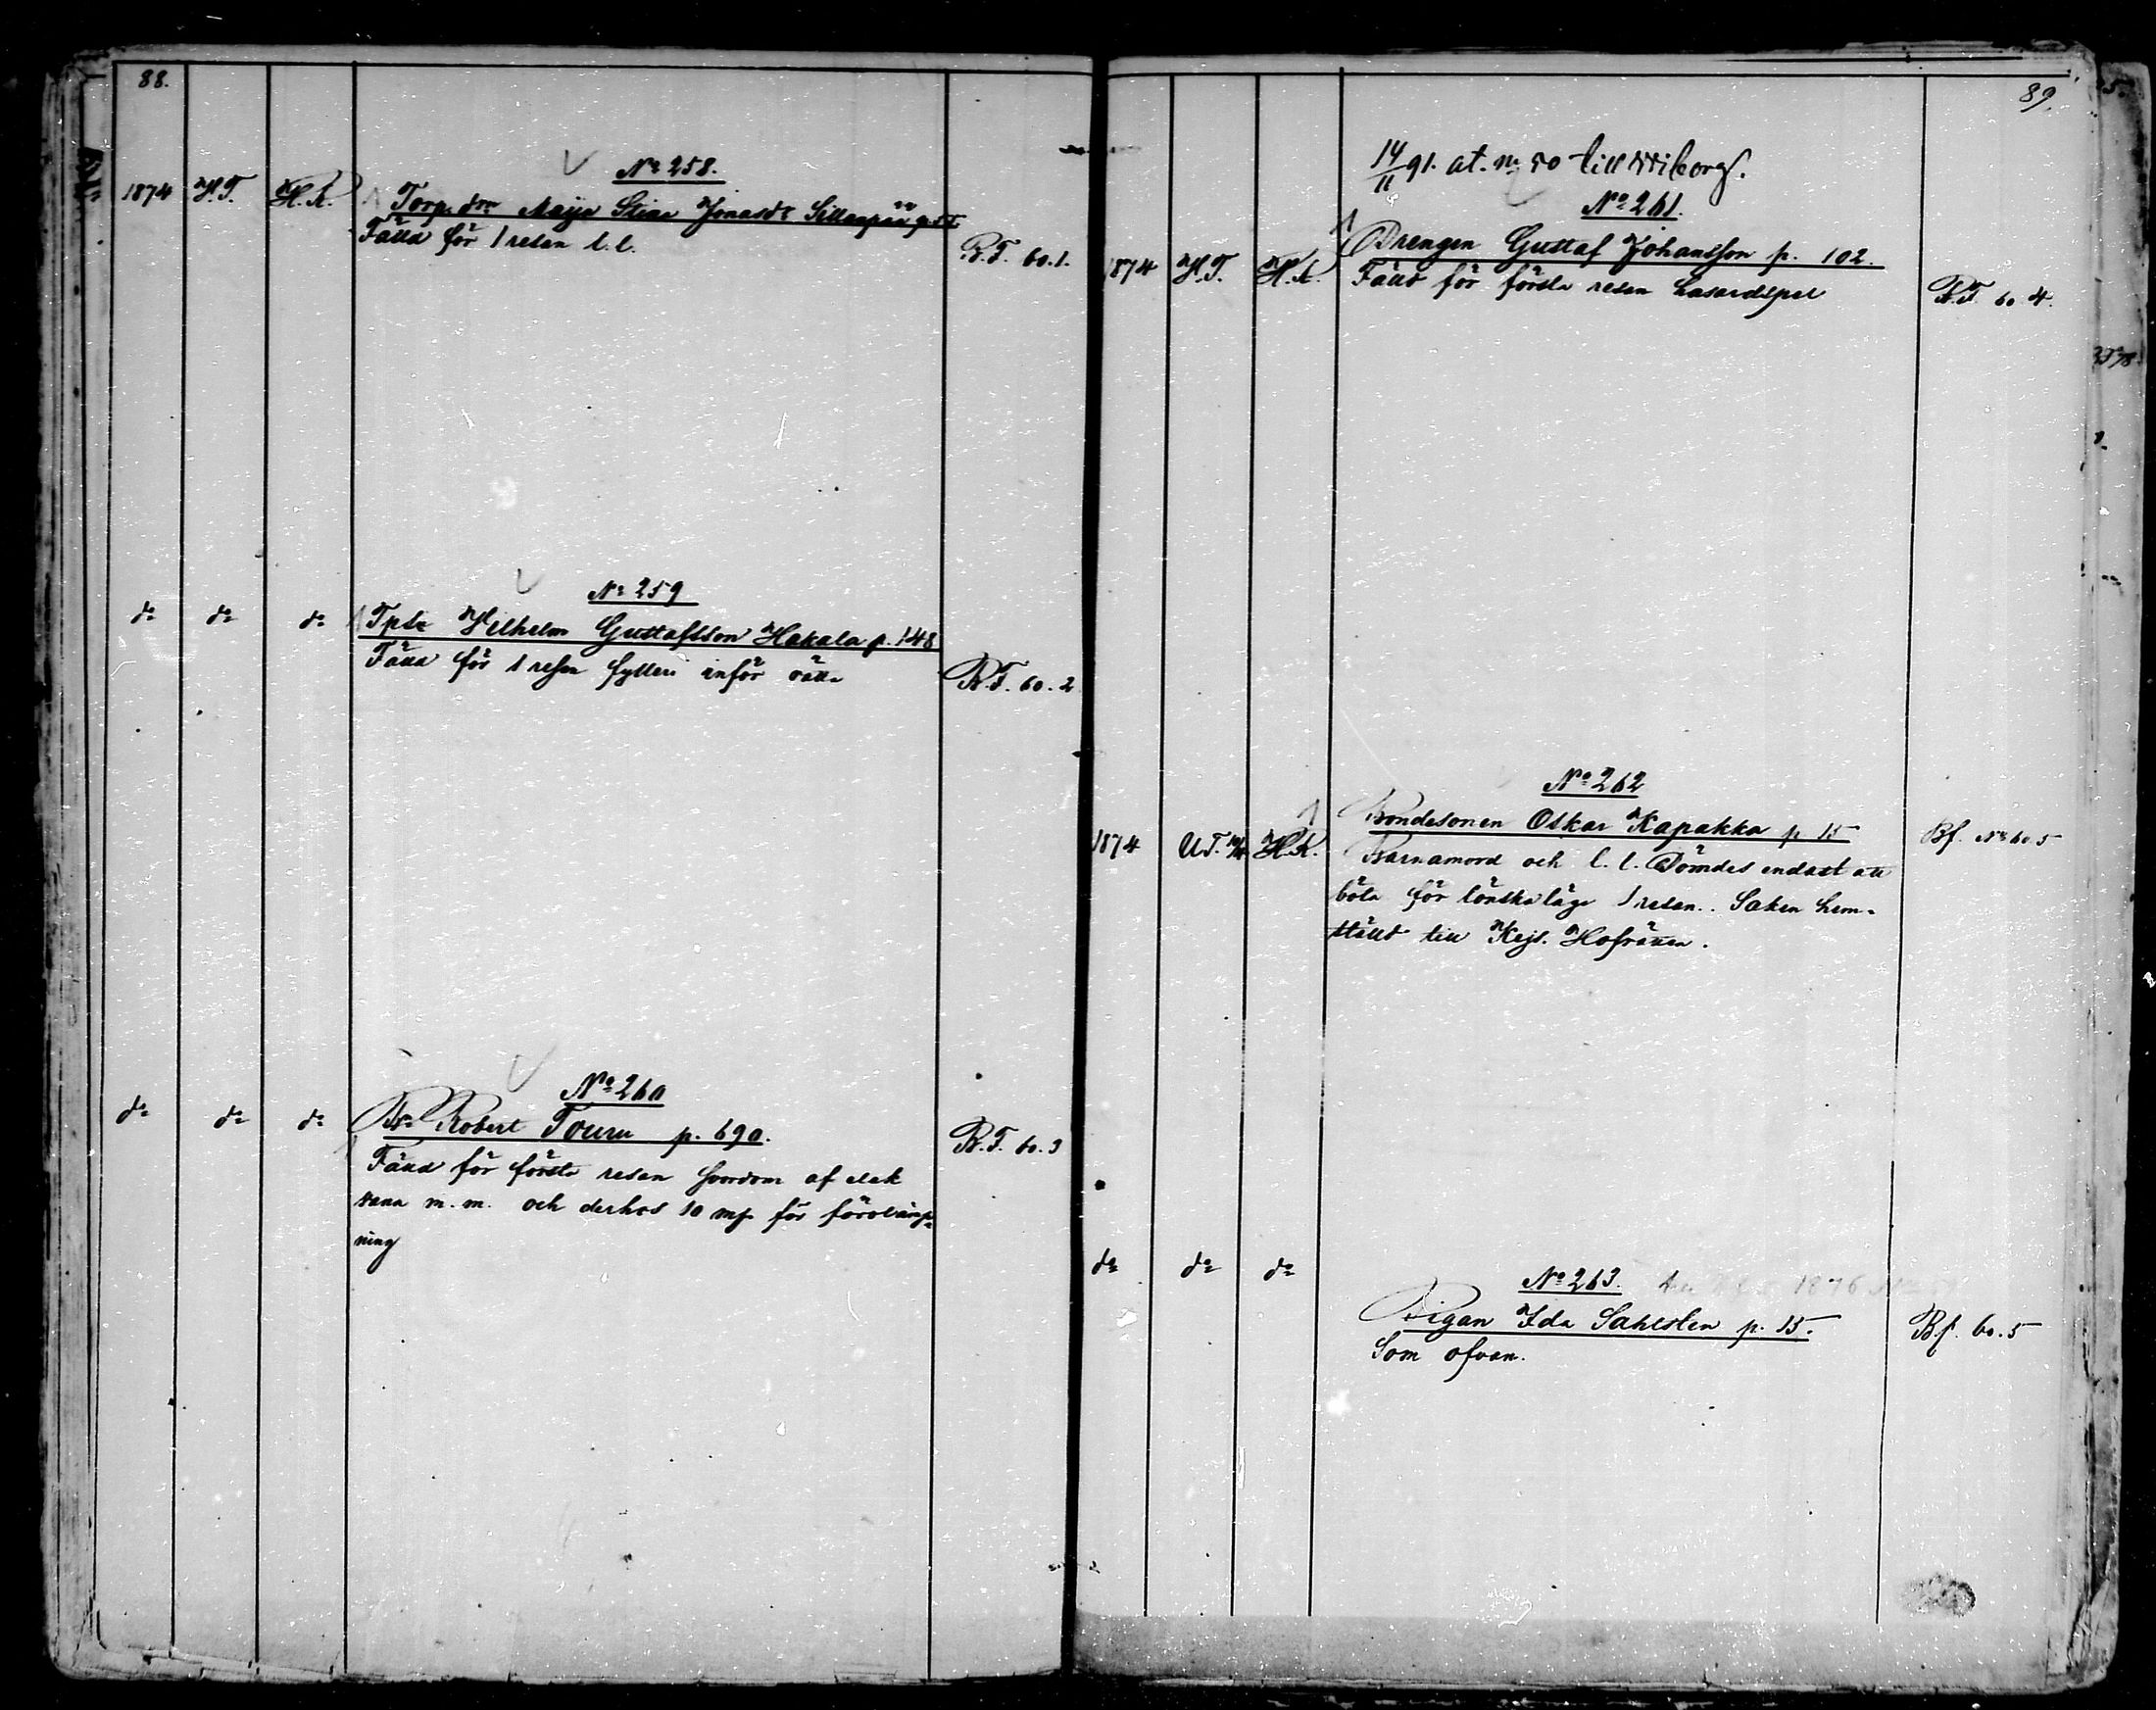 88.
No 258.
1874 H.T. H.K. Torp. dn Maija Stina Jonasdr Sillanpää
Fälld för 1 resan l. l.
B.F. 60.1.
No 259
do do do Tpdr Wilhelm Gustafsson Hakala p. 148
Fälld för 1 resan fylleri inför rätta
B.F. 60.2
No 260
do do do Robert Touru p. 690.
Fälld för första resan hordom af
m. m. och derhos 10 mk för förolämp-
ning
B.F. 60.3
89.
14/11 91. at. no 50 till Wiborg.
No 261.
1874 H.T. H.K. Drengen Gustaf Johansson p. 102.
Fälld för första resan hasardspel
B.F. 60 4.
No 262
1874 U.T. H.K. Bondesonen Oskar Kapakka p 15
Bf. No 60.5
Barnamord och l. l. Dömdes endast att
böta för lönskaläge 1 resan. Saken hem-
ställd till Kejs. Hofrätten.
No 263. 1876
do do do Pigan Ida Sahlsten p. 15.
Bf. 60.5
Som ofvan.